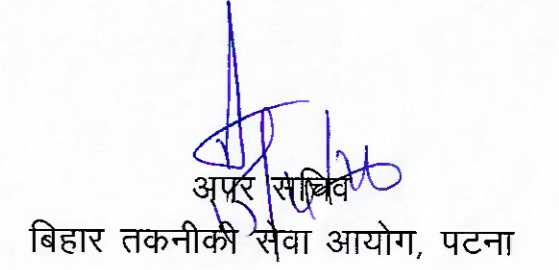 अपर सचिव
बिहार तकनीकी सेवा आयोग, पटना